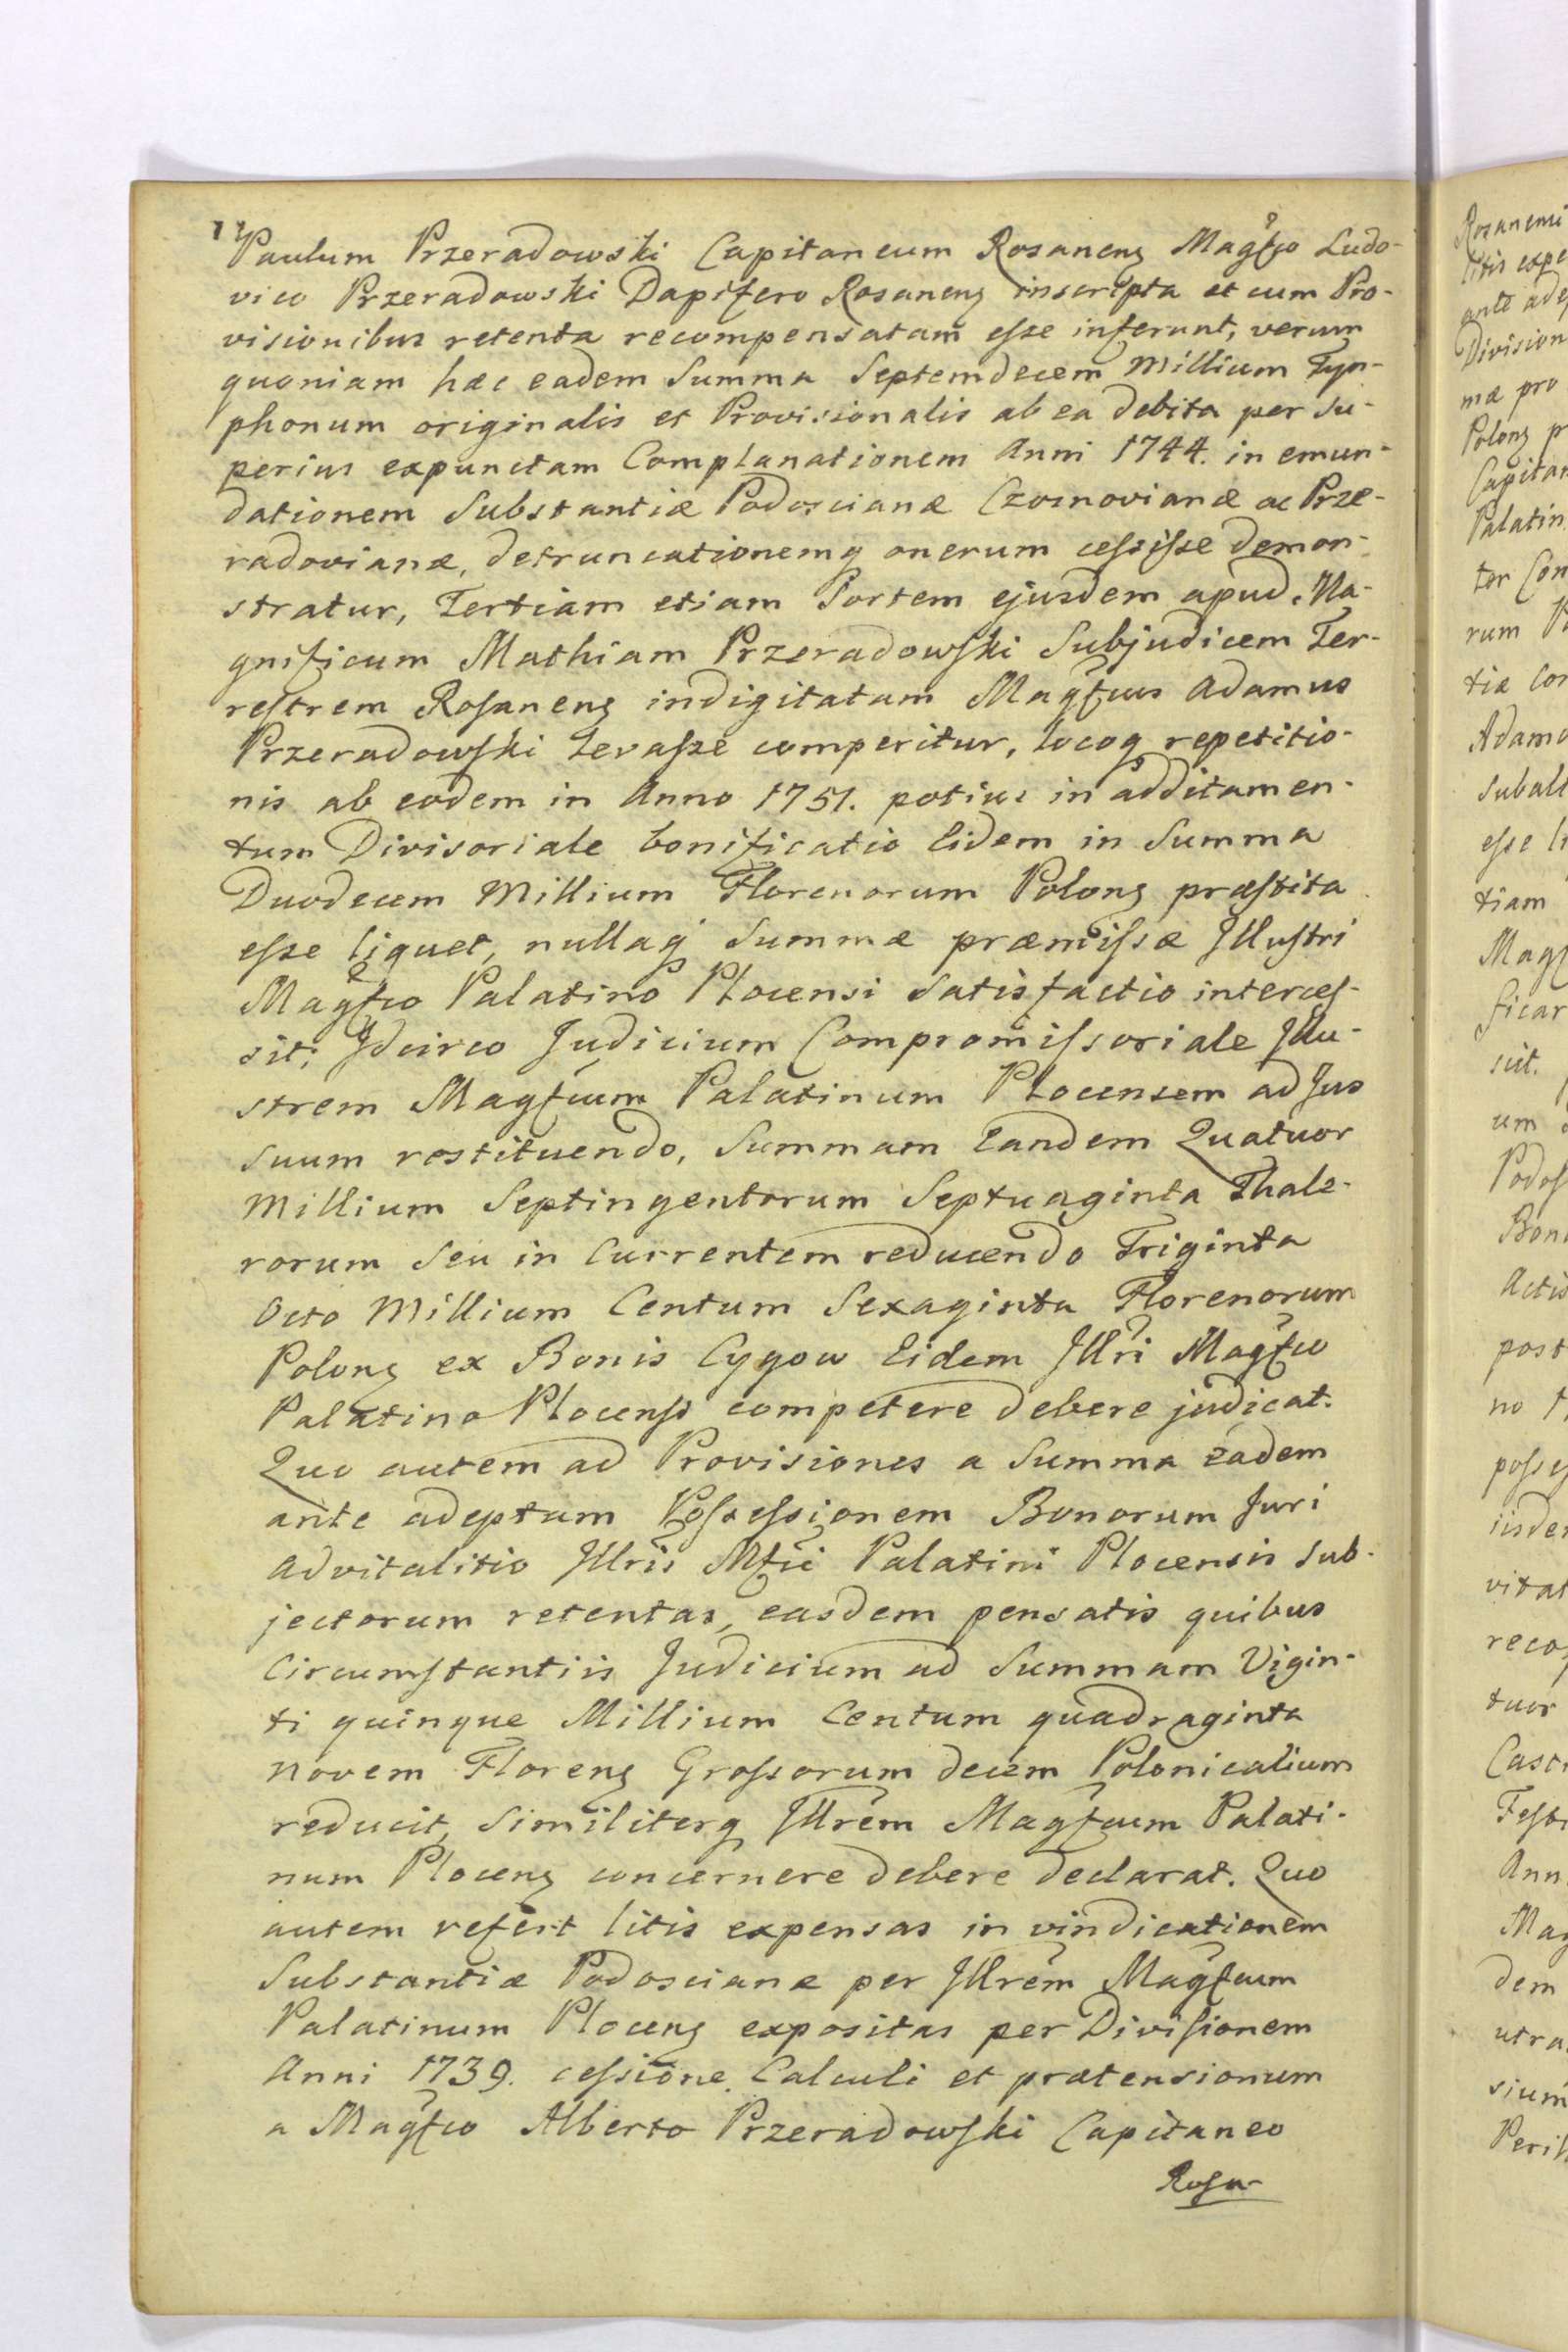 Paulum Przeradowski Capitaneum Rosaneng Magfco Ludo-
vico Przeradowski Dapifero Rosaneng inscripta et cum Pro-
visionibus retenta recompensatam eſse inferunt, verum
quoniam hæc eadem Summa Septemdecem Millium Tyn-
phonum originalis et Provisionalis ab ea debita per Su-
perius expunctam Complanationem Anni 1744. in emun-
dationem Substantiæ Podoscianæ Czosnovianæ ac Prze-
radovianæ, detruncationemq onerum ceſsiſse demon-
stratur, Tertiam etiam Sortem ejusdem apud Ma-
gnificum Mathiam Przeradowſki Subjudicem Ter-
reſtrem Roſaneng indigitatam Magfcus Adamus
Przeradowſki levaſse comperitur, locoq repetitio-
nis ab eodem in Anno 1751. potius in additamen-
tum Divisoriale bonificatio Eidem in Summa
Duodecem Millium Florenorum Polong præſtita
eſse liquet, nullaq Summæ præmiſsæ Illuſtri
Magfco Palatino Plocensi Satisfactio interceſ-
sit; Idcirco Judicium Compromiſsoriale Illu-
strem Magfcum Palatinum Plocensem ad Jus
suum restituendo, Summam Eandem Quatuor
Millium Septingentorum Septuaginta Thale-
rorum Seu in Currentem reducendo Triginta
Octo Millium Centum Sexaginta Florenorum
Polong ex Bonis Cygow Eidem Illri Magfco
Palatino Plocenſi competere debere judicat.
Quo autem ad Provisiones a Summa eadem
ante adeptam Poſseſsionem Bonorum Juri
Advitalitio Illris Mfci Palatini Plocensis Sub-
jectorum retentas, easdem pensatis quibus
Circumſtantiis Judicium ad Summam Vigin-
ti quinque Millium Centum quadraginta
Novem Floreng Groſsorum decem Polonicalium
reducit, Similiterq Illrem Magfcum Palati-
num Ploceng concernere debere declarat. Quo
autem refert litis expensas in vindicationem
Substantiæ Podoscianæ per Illrem Magfcum
Palatinum Ploceng expositas per Diviſionem
Anni 1739. ceſsione Calculi et prætensionum
a Magfco Alberto Przeradowſki Capitaneo
Roſa-
Division
mæ pro
Polong
Palatin
ter Con
rum
tiæ
Adamo
tiam
sit.
um
Actis
post
no
vitat
tuor
Ann
dem
utra